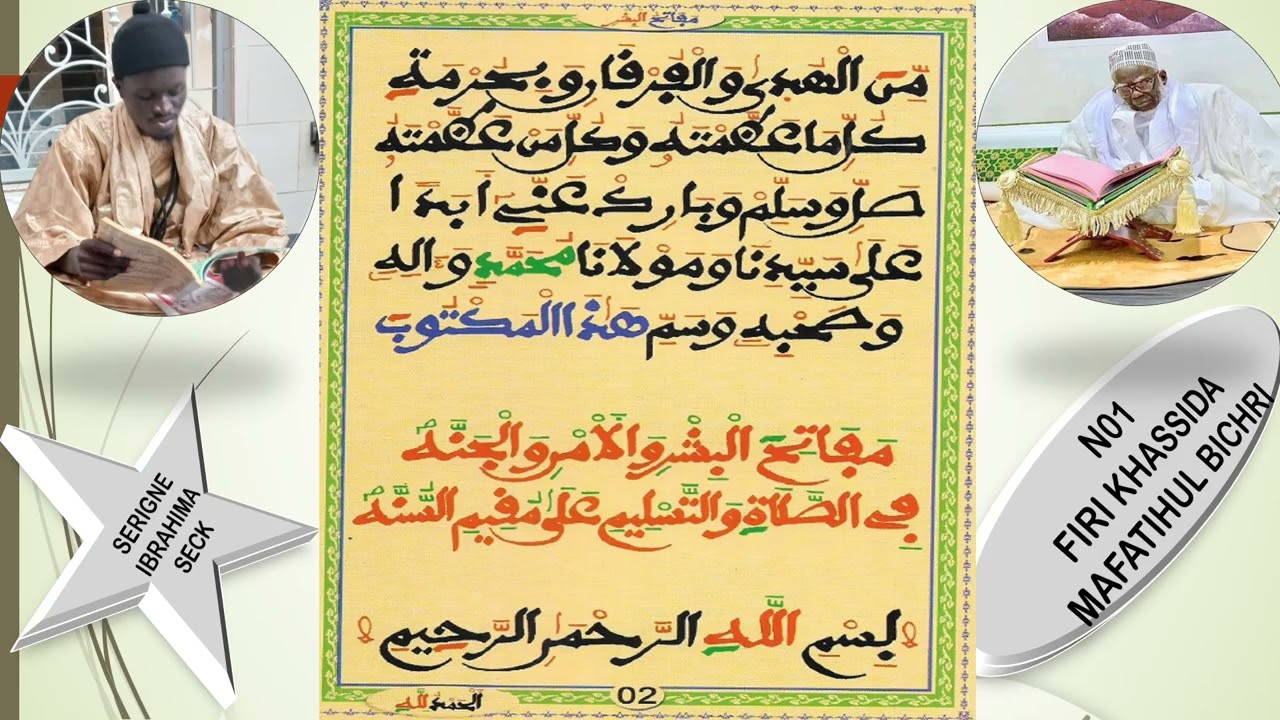 مفاتح البشر
مِّنَ الْهُدَىٰ وَالْفُرْقَانِ وَبِحُرْمَةِ
كُلِّ مَا عَظَّمْتَهُ وَكُلِّ مَنْ عَظَّمْتَهُ
صَلِّ وَسَلِّمْ وَبَارِكْ عَنِّي أَبَدًا
عَلَىٰ سَيِّدِنَا وَمَوْلَانَا مُحَمَّدٍ وَءَالِهِ
وَصَحْبِهِ وَسَمِّ هَٰذَا الْمَكْتُوبَ
مَفَاتِحَ الْبِشْرِ وَالْأَمْنِ وَالْجَنَّهْ
فِي الصَّلَاةِ وَالتَّسْلِيمِ عَلَىٰ مُقِيمِ السُّنَّهْ
بِسْمِ اللَّهِ الرَّحْمَٰنِ الرَّحِيمِ
الحمد لله
02
SERIGNE
IBRAHIMA
SECK
N01
FIRI KHASSIDA
MAFATIHUL BICHRI